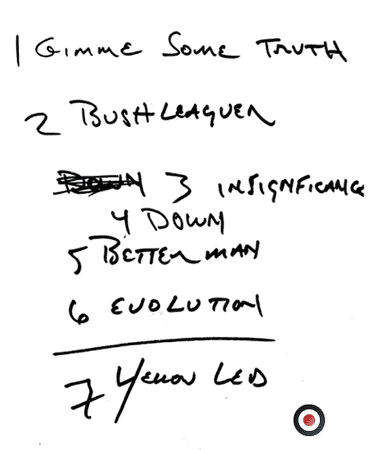 1 GIMME SOME TRUTH
2 BUSHLEAGUER
DOWN 3 INSIGNIFICANCE
4 DOWN
5 BETTER MAN
6 EVOLUTION
7 YELLOW LED